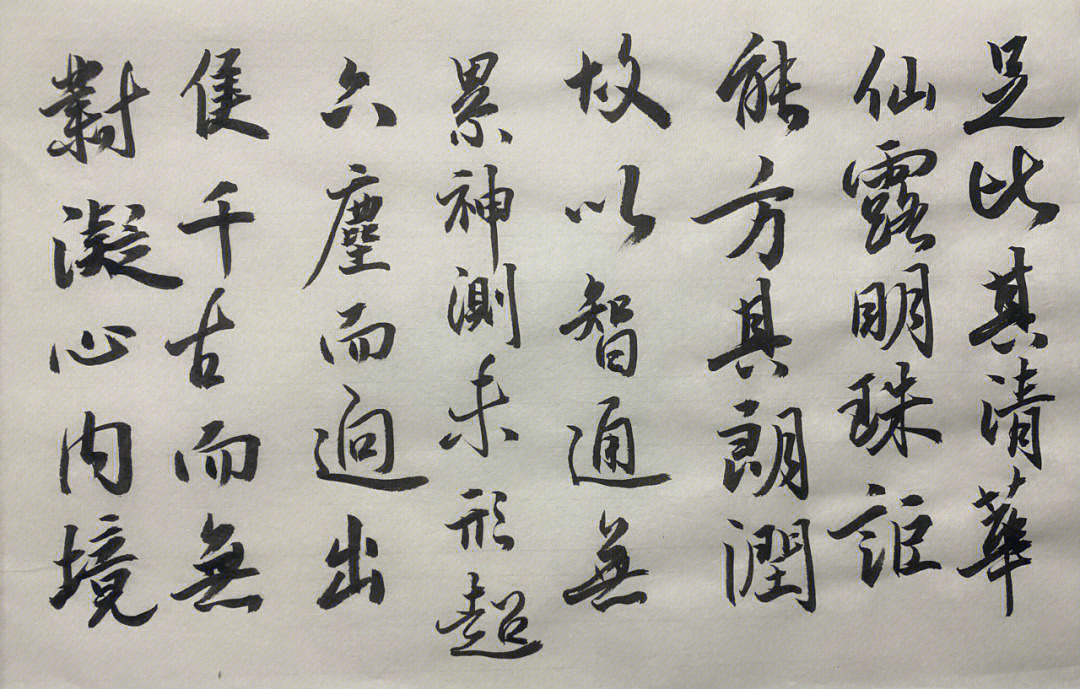 足比其清華
仙露明珠詎
能方其朗潤
故以智通無
累神測未形超
六塵而迥出
隻千古而無
對凝心內境